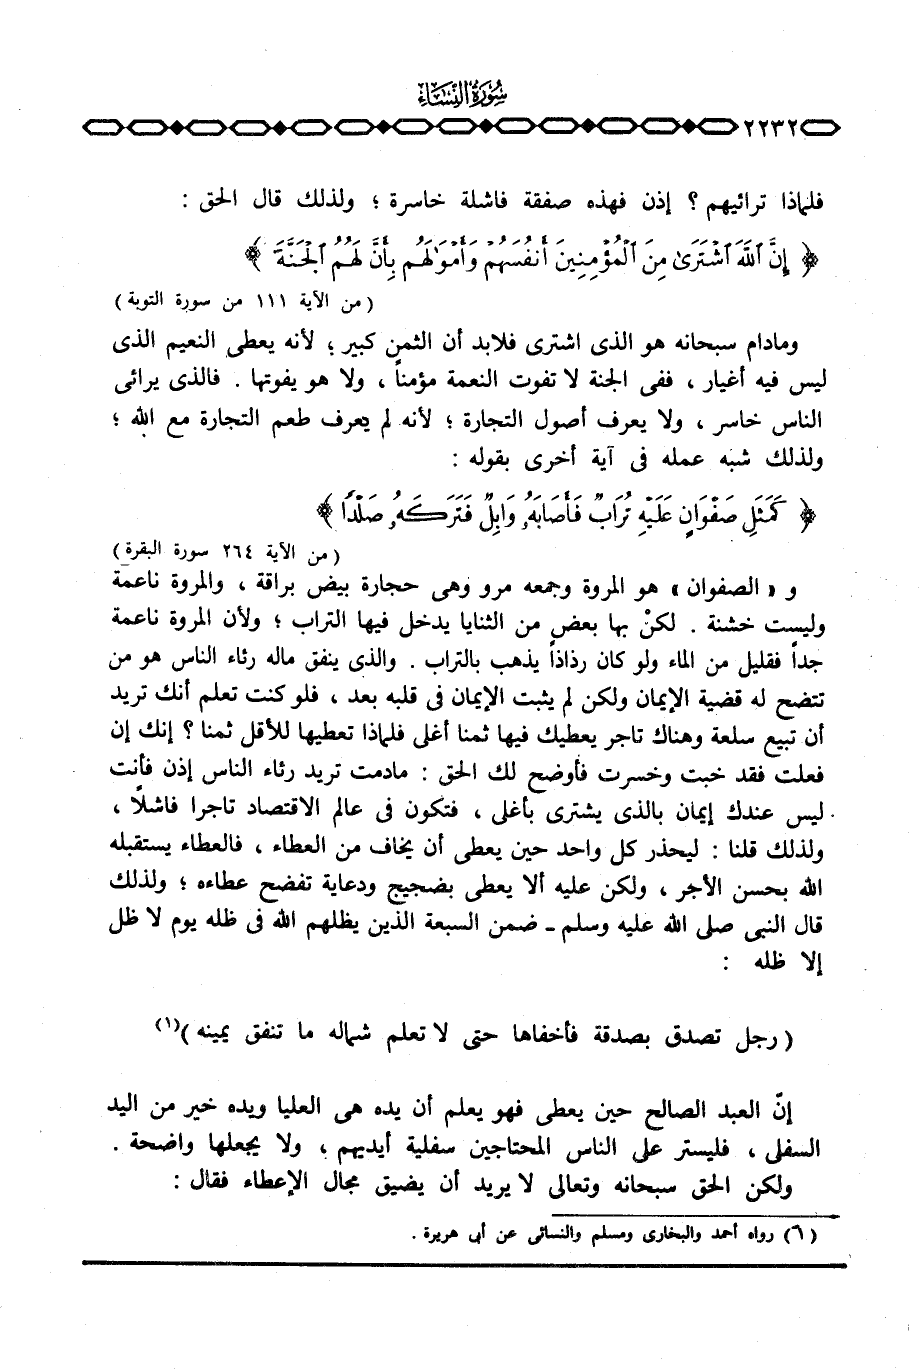 سورة النساء
٢٢٣٢
فلماذا ترائيهم ؟ إذن فهذه صفقة فاشلة خاسرة ؛ ولذلك قال الحق :
﴿ إِنَّ ٱللَّهَ ٱشْتَرَىٰ مِنَ ٱلْمُؤْمِنِينَ أَنفُسَهُمْ وَأَمْوَٰلَهُم بِأَنَّ لَهُمُ ٱلْجَنَّةَ ﴾
( من الآية ١١١ من سورة التوبة )
ومادام سبحانه هو الذى اشترى فلابد أن الثمن كبير ؛ لأنه يعطى النعيم الذى
ليس فيه أغيار ، ففى الجنة لا تفوت النعمة مؤمناً ، ولا هو يفوتها . فالذى يرائى
الناس خاسر ، ولا يعرف أصول التجارة ؛ لأنه لم يعرف طعم التجارة مع الله ؛
ولذلك شبه عمله فى آية أخرى بقوله :
﴿ كَمَثَلِ صَفْوَانٍ عَلَيْهِ تُرَابٌ فَأَصَابَهُۥ وَابِلٌ فَتَرَكَهُۥ صَلْدًا ﴾
( من الآية ٢٦٤ سورة البقرة )
و « الصفوان » هو المروة وجمعه مرو وهى حجارة بيض براقة ، والمروة ناعمة
وليست خشنة . لكنْ بها بعض من الثنايا يدخل فيها التراب ؛ ولأن المروة ناعمة
جداً فقليل من الماء ولو كان رذاذاً يذهب بالتراب . والذى ينفق ماله رئاء الناس هو من
تتضح له قضية الإيمان ولكن لم يثبت الإيمان فى قلبه بعد ، فلو كنت تعلم أنك تريد
أن تبيع سلعة وهناك تاجر يعطيك فيها ثمنا أغلى فلماذا تعطيها للأقل ثمنا ؟ إنك إن
فعلت فقد خبت وخسرت فأوضح لك الحق : مادمت تريد رئاء الناس إذن فأنت
ليس عندك إيمان بالذى يشترى بأغلى ، فتكون فى عالم الاقتصاد تاجرا فاشلًا ،
ولذلك قلنا : ليحذر كل واحد حين يعطى أن يخاف من العطاء ، فالعطاء يستقبله
الله بحسن الأجر ، ولكن عليه ألا يعطى بضجيج ودعاية تفضح عطاءه ؛ ولذلك
قال النبى صلى الله عليه وسلم - ضمن السبعة الذين يظلهم الله فى ظله يوم لا ظل
إلا ظله :
( رجل تصدق بصدقة فأخفاها حتى لا تعلم شماله ما تنفق يمينه )(١)
إنّ العبد الصالح حين يعطى فهو يعلم أن يده هى العليا ويده خير من اليد
السفلى ، فليستر على الناس المحتاجين سفلية أيديهم ، ولا يجعلها واضحة .
ولكن الحق سبحانه وتعالى لا يريد أن يضيق مجال الإعطاء فقال :
(٦) رواه أحمد والبخارى ومسلم والنسائى عن أبى هريرة .